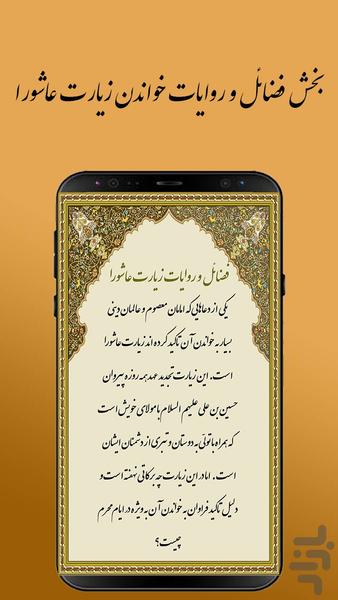 بخش فضائل و روایات خواندن زیارت عاشورا
فضائل و روایات زیارت عاشورا
یکی از دعاهایی که امامان معصوم و عالمان دینی
بسیار به خواندن آن تاکید کرده اند زیارت عاشورا
است. این زیارت تجدید عهد همه روزه پیروان
حسین بن علی علیهم السلام با مولای خویش است
که همراه با تولی به دوستان و تبری از دشمنان ایشان
است. اما در این زیارت چه برکاتی نهفته است و
دلیل تاکید فراوان به خواندن آن به ویژه در ایام محرم
چیست؟
بازار